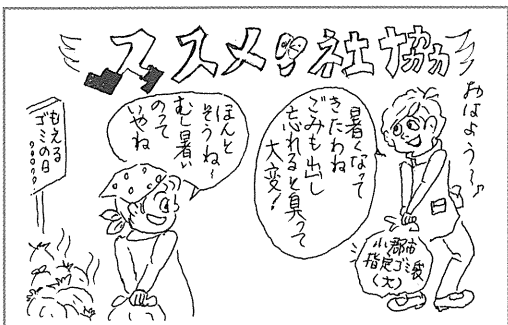 ススメ!!社協
おはよう～♪
暑くなって
きたわね
ごみも出し
忘れると臭って
大変!
ほんと
そうね～
むし暑い
のって
いやね
もえる
ゴミの日
小郡市
指定ゴミ袋
(大)